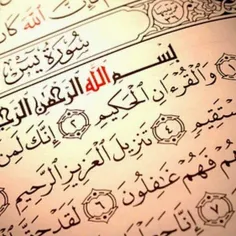 اللَّهَ كَا
سُورَةُ يسٓ
بِسْمِ اللَّهِ الرَّحْمَٰنِ الرَّحِ
وَٱلْقُرْءَانِ ٱلْحَكِيمِ ٢ إِنَّكَ لَمِنَ
سْتَقِيمٍ ٤ تَنزِيلَ ٱلْعَزِيزِ ٱلرَّحِيمِ
هُمْ فَهُمْ غَٰفِلُونَ ٦ لَقَدْ حَقَّ
٧ إِنَّا جَ